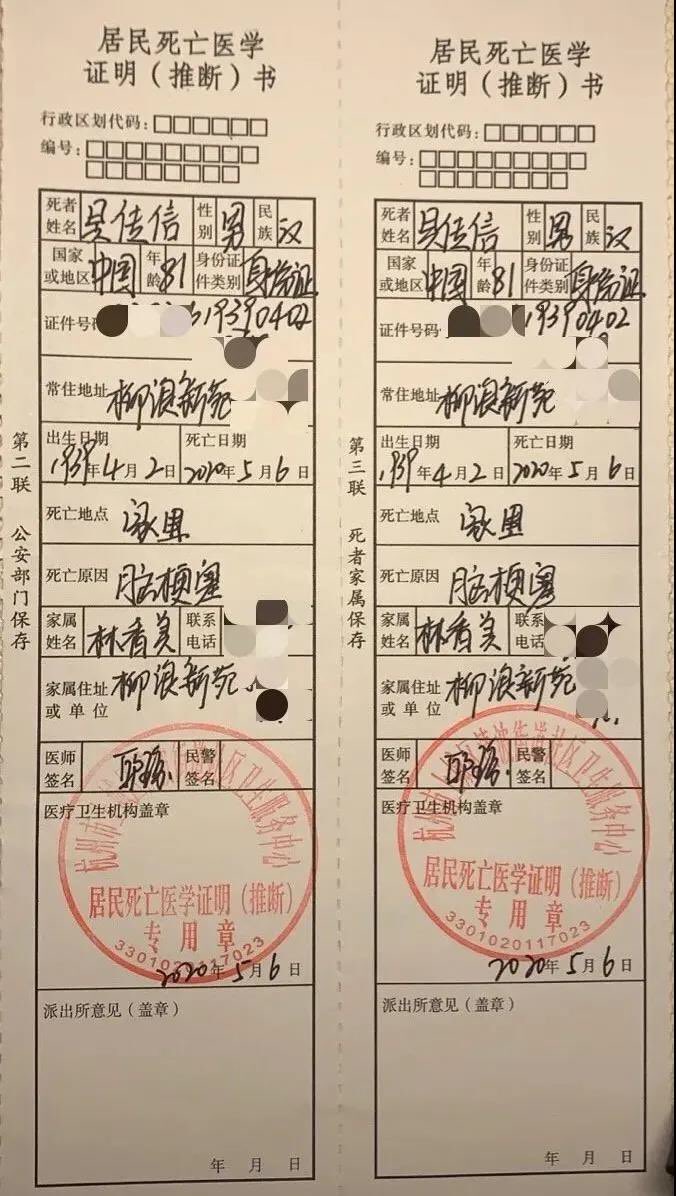 居民死亡医学
证明（推断）书
行政区划代码：□□□□□□
编号：□□□□□□□□□
□□□□□□□□
死者姓名 吴佳信 性别 男 民族 汉
国家或地区 中国 年龄 81 身份证件类别 身份证
证件号码 19390402
常住地址 柳浪新苑
出生日期 死亡日期
1939年4月2日 2020年5月6日
死亡地点 家里
死亡原因 脑梗塞
家属姓名 林香美 联系电话
家属住址或单位 柳浪新苑
医师签名 民警签名
医疗卫生机构盖章
杭州市 社区卫生服务中心
居民死亡医学证明（推断）
专用章
3301020117023
2020年5月6日
派出所意见（盖章）
年 月 日
第二联 公安部门保存
居民死亡医学
证明（推断）书
行政区划代码：□□□□□□
编号：□□□□□□□□□
□□□□□□□□
死者姓名 吴佳信 性别 男 民族 汉
国家或地区 中国 年龄 81 身份证件类别 身份证
证件号码 19390402
常住地址 柳浪新苑
出生日期 死亡日期
1939年4月2日 2020年5月6日
死亡地点 家里
死亡原因 脑梗塞
家属姓名 林香美 联系电话
家属住址或单位 柳浪新苑
医师签名 民警签名
医疗卫生机构盖章
杭州市 社区卫生服务中心
居民死亡医学证明（推断）
专用章
3301020117023
2020年5月6日
派出所意见（盖章）
年 月 日
第三联 死者家属保存